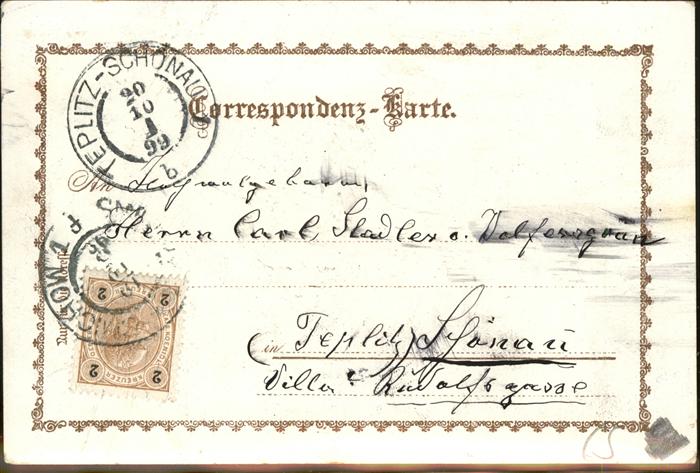 TEPLITZ-SCHÖNAU
20
10
99
b
Correspondenz-Karte.
An Hochwolgeboren
Herrn Carl Stadler v. Wolfersgrün
in Teplitz Schönau
Villa Rudolfsgasse
Nur für die Adresse
2 2
KREUZER
2 2
15